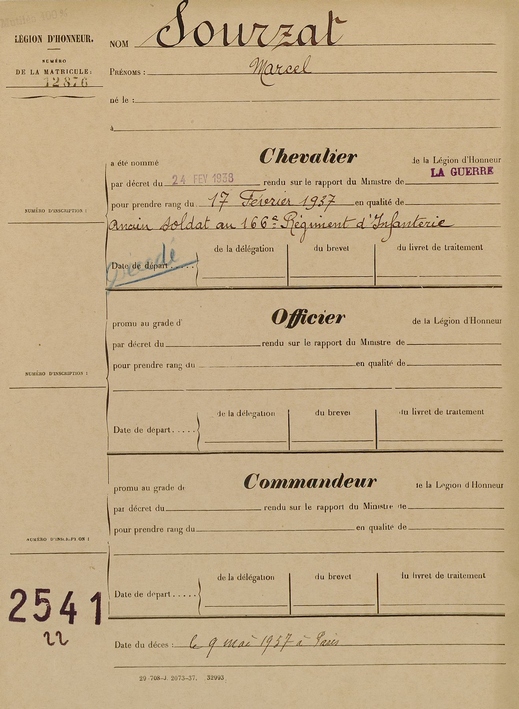 LÉGION D'HONNEUR.
NUMÉRO
DE LA MATRICULE:
12876
NOM Sourzat
PRÉNOMS: Marcel
né le:
à
a été nommé Chevalier de la Légion d'Honneur
par décret du 24 FEV 1938 rendu sur le rapport du Ministre de LA GUERRE
pour prendre rang du 17 Février 1937 en qualité de
ancien soldat au 166e Régiment d'Infanterie
NUMÉRO D'INSCRIPTION:
de la délégation du brevet du livret de traitement
Date de départ
promu au grade d' Officier de la Légion d'Honneur
par décret du rendu sur le rapport du Ministre de
pour prendre rang du en qualité de
NUMÉRO D'INSCRIPTION:
de la délégation du brevet du livret de traitement
Date de départ.....
promu au grade de Commandeur de la Légion d'Honneur
par décret du rendu sur le rapport du Ministre de
pour prendre rang du en qualité de
NUMÉRO D'INSCRIPTION:
de la délégation du brevet du livret de traitement
Date de départ.....
2541
22
Date du décès: le 9 mai 1957 à Paris
29-708-J. 2073-37. 32993